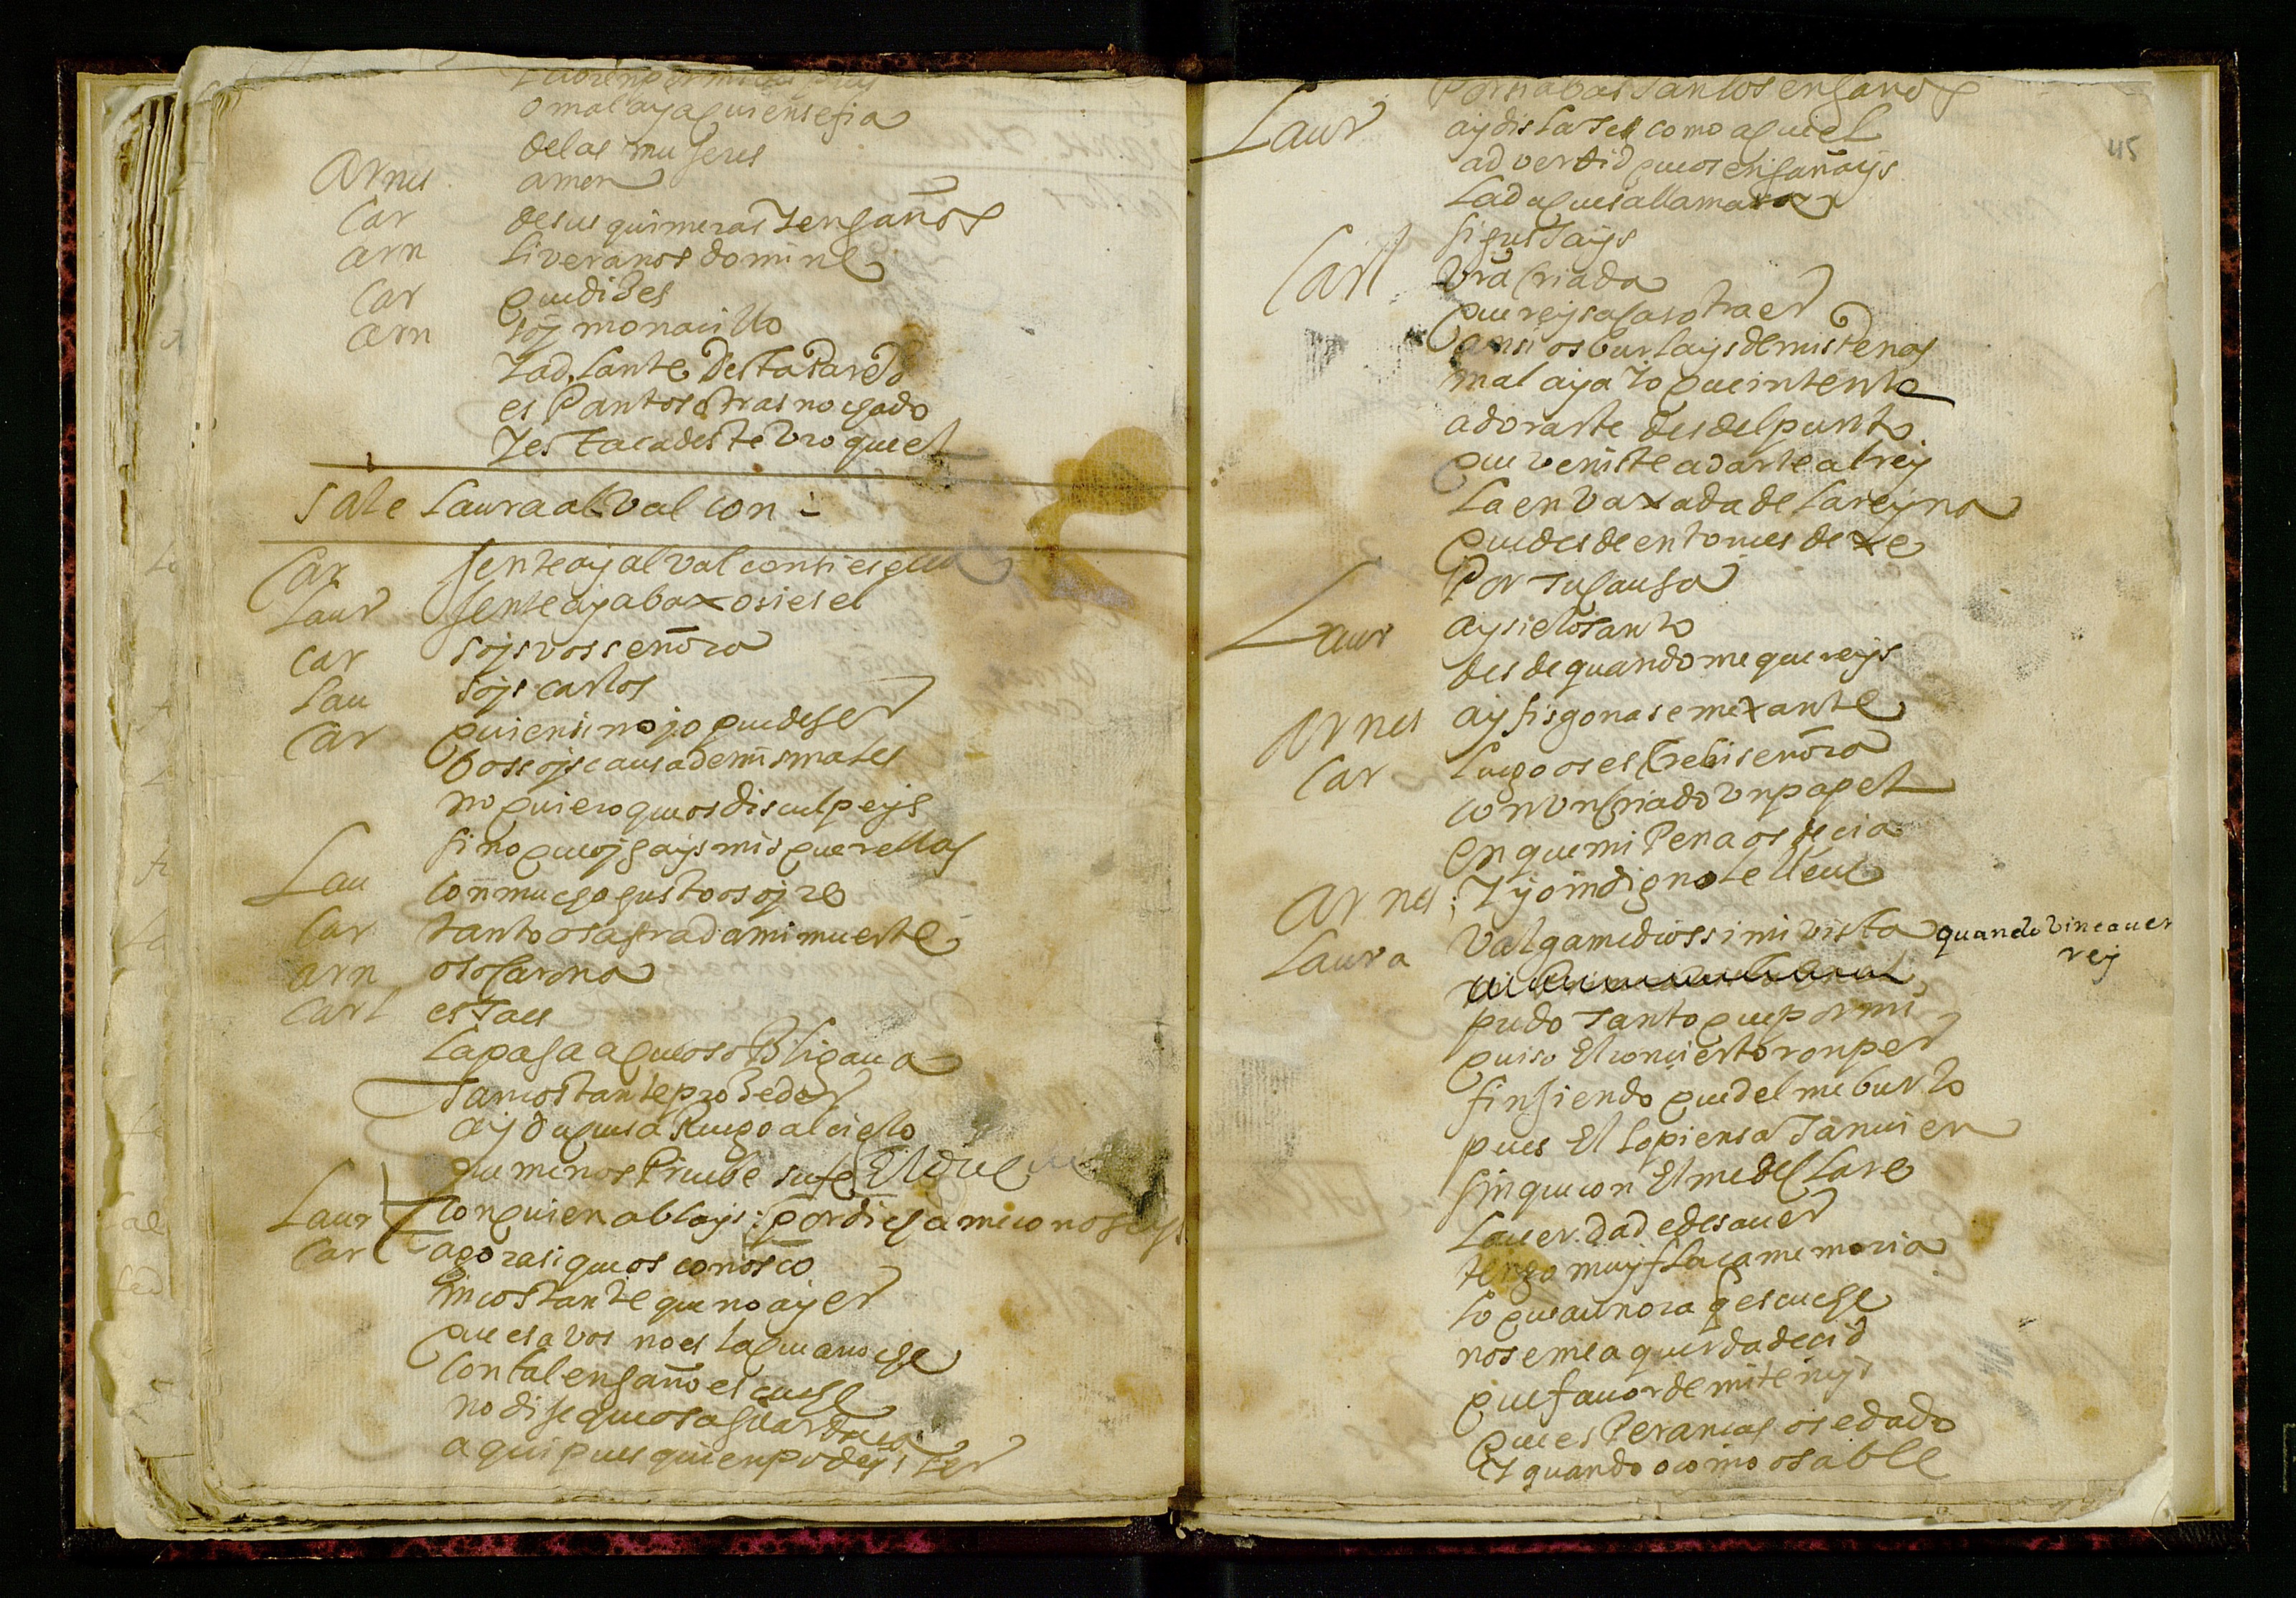 o mal aya quien se fia
de las mugeres
Arnes amen
Car de sus quimeras y engaños
arn liveranos domine
Car que dizes
arn soy monacillo
y adelante desta pared
es Pantos trasnochado
y estaca deste broquel
Sale Laura al valcon
Car gente ay al valcon si es
Laur gente ay abaxo si es el
Car soys vos señora
Lau soys carlos
Car quien sino yo puede ser
vos soys causa de mis males
no quiero que os disculpeys
sino que oygays mis querellas
Lau con mucho gusto os oyre
Car tanto os agrada mi muerte
arn o socarrona
Carl esta es
la paga a que os obligaua
tan costante prozeder
ay duquesa Ruego al cielo
que menos Prueue su fe El duque
Laur con quien ablays por dicha me conoseys
Car agora si que os conosco
incostante que no ayer
que esa vos no es la que anoche
con tal engaño escuche
no dije que os aguardaua
aqui pues quien podeys ser
Por si abas tantos engaños
Laur ay disla tal como aquel
advertid que os engañays
la duquesa llamare
si gustays
Carl vra criada
quereys acaso traer
ansi os burlays de mis Penas
mal aya yo que intente
adorarte desdel punto
que veniste a darle al rey
la envaxada de la reyna
que desde entonces dexe
Por tu causa
Laur ay sielo santo
desde quando me quereys
Arnes ay fisgona semexante
Car luego os escrebi señora
con un criado un papel
en que mi Pena os decia
Arnes y yo indigno le lleue
Laura valgame dios si mi vista quando vine a uer
rey
pudo tanto que por mi
quiso El concierto ronper
finjiendo que del me burlo
pues El lo piensa tanvien
sin que con El me declare
la verdad e de sauer
tengo muy flaca memoria
lo que aun ora q escuche
no se me aquerda decid
que fauor de mi teneys
que esperancas os e dado
y quando o como os able
45